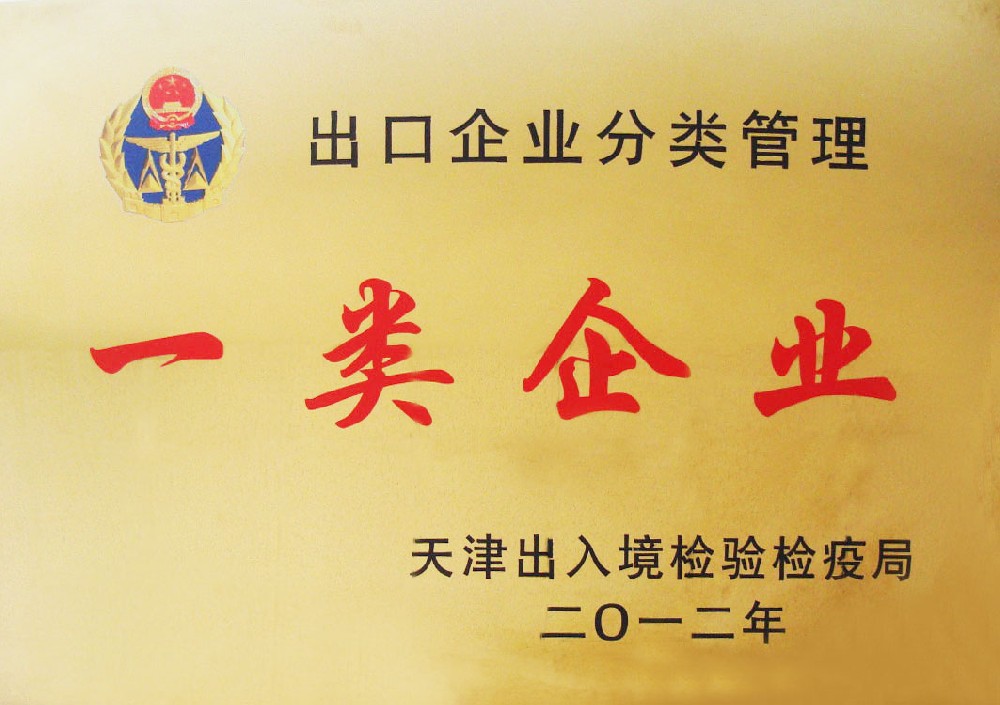 出口企业分类管理
一类企业
天津出入境检验检疫局
二〇一二年